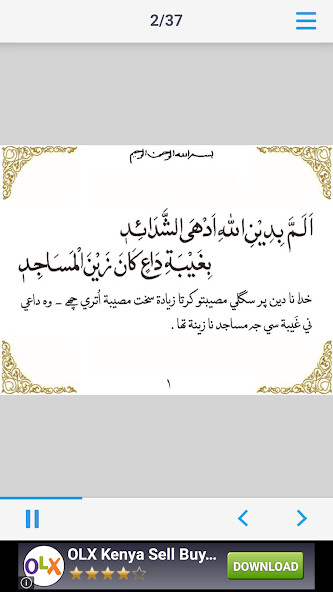 2/37
بسم الله الرحمن الرحيم
اَلَمَّ بِدِيْنِ اللّٰهِ اَدْهَى الشَّدَائِدِ
بِغَيْبَةِ دَاعٍ كَانَ زَيْنَ الْمَسَاجِدِ
خدا نا دين پر سگلي مصيبتو كرتا زيادة سخت مصيبة اُتري چهے ـ وه داعي
ني غَيبة سي جه مساجد نا زينة تها .
١
OLX
OLX Kenya Sell Buy...
DOWNLOAD